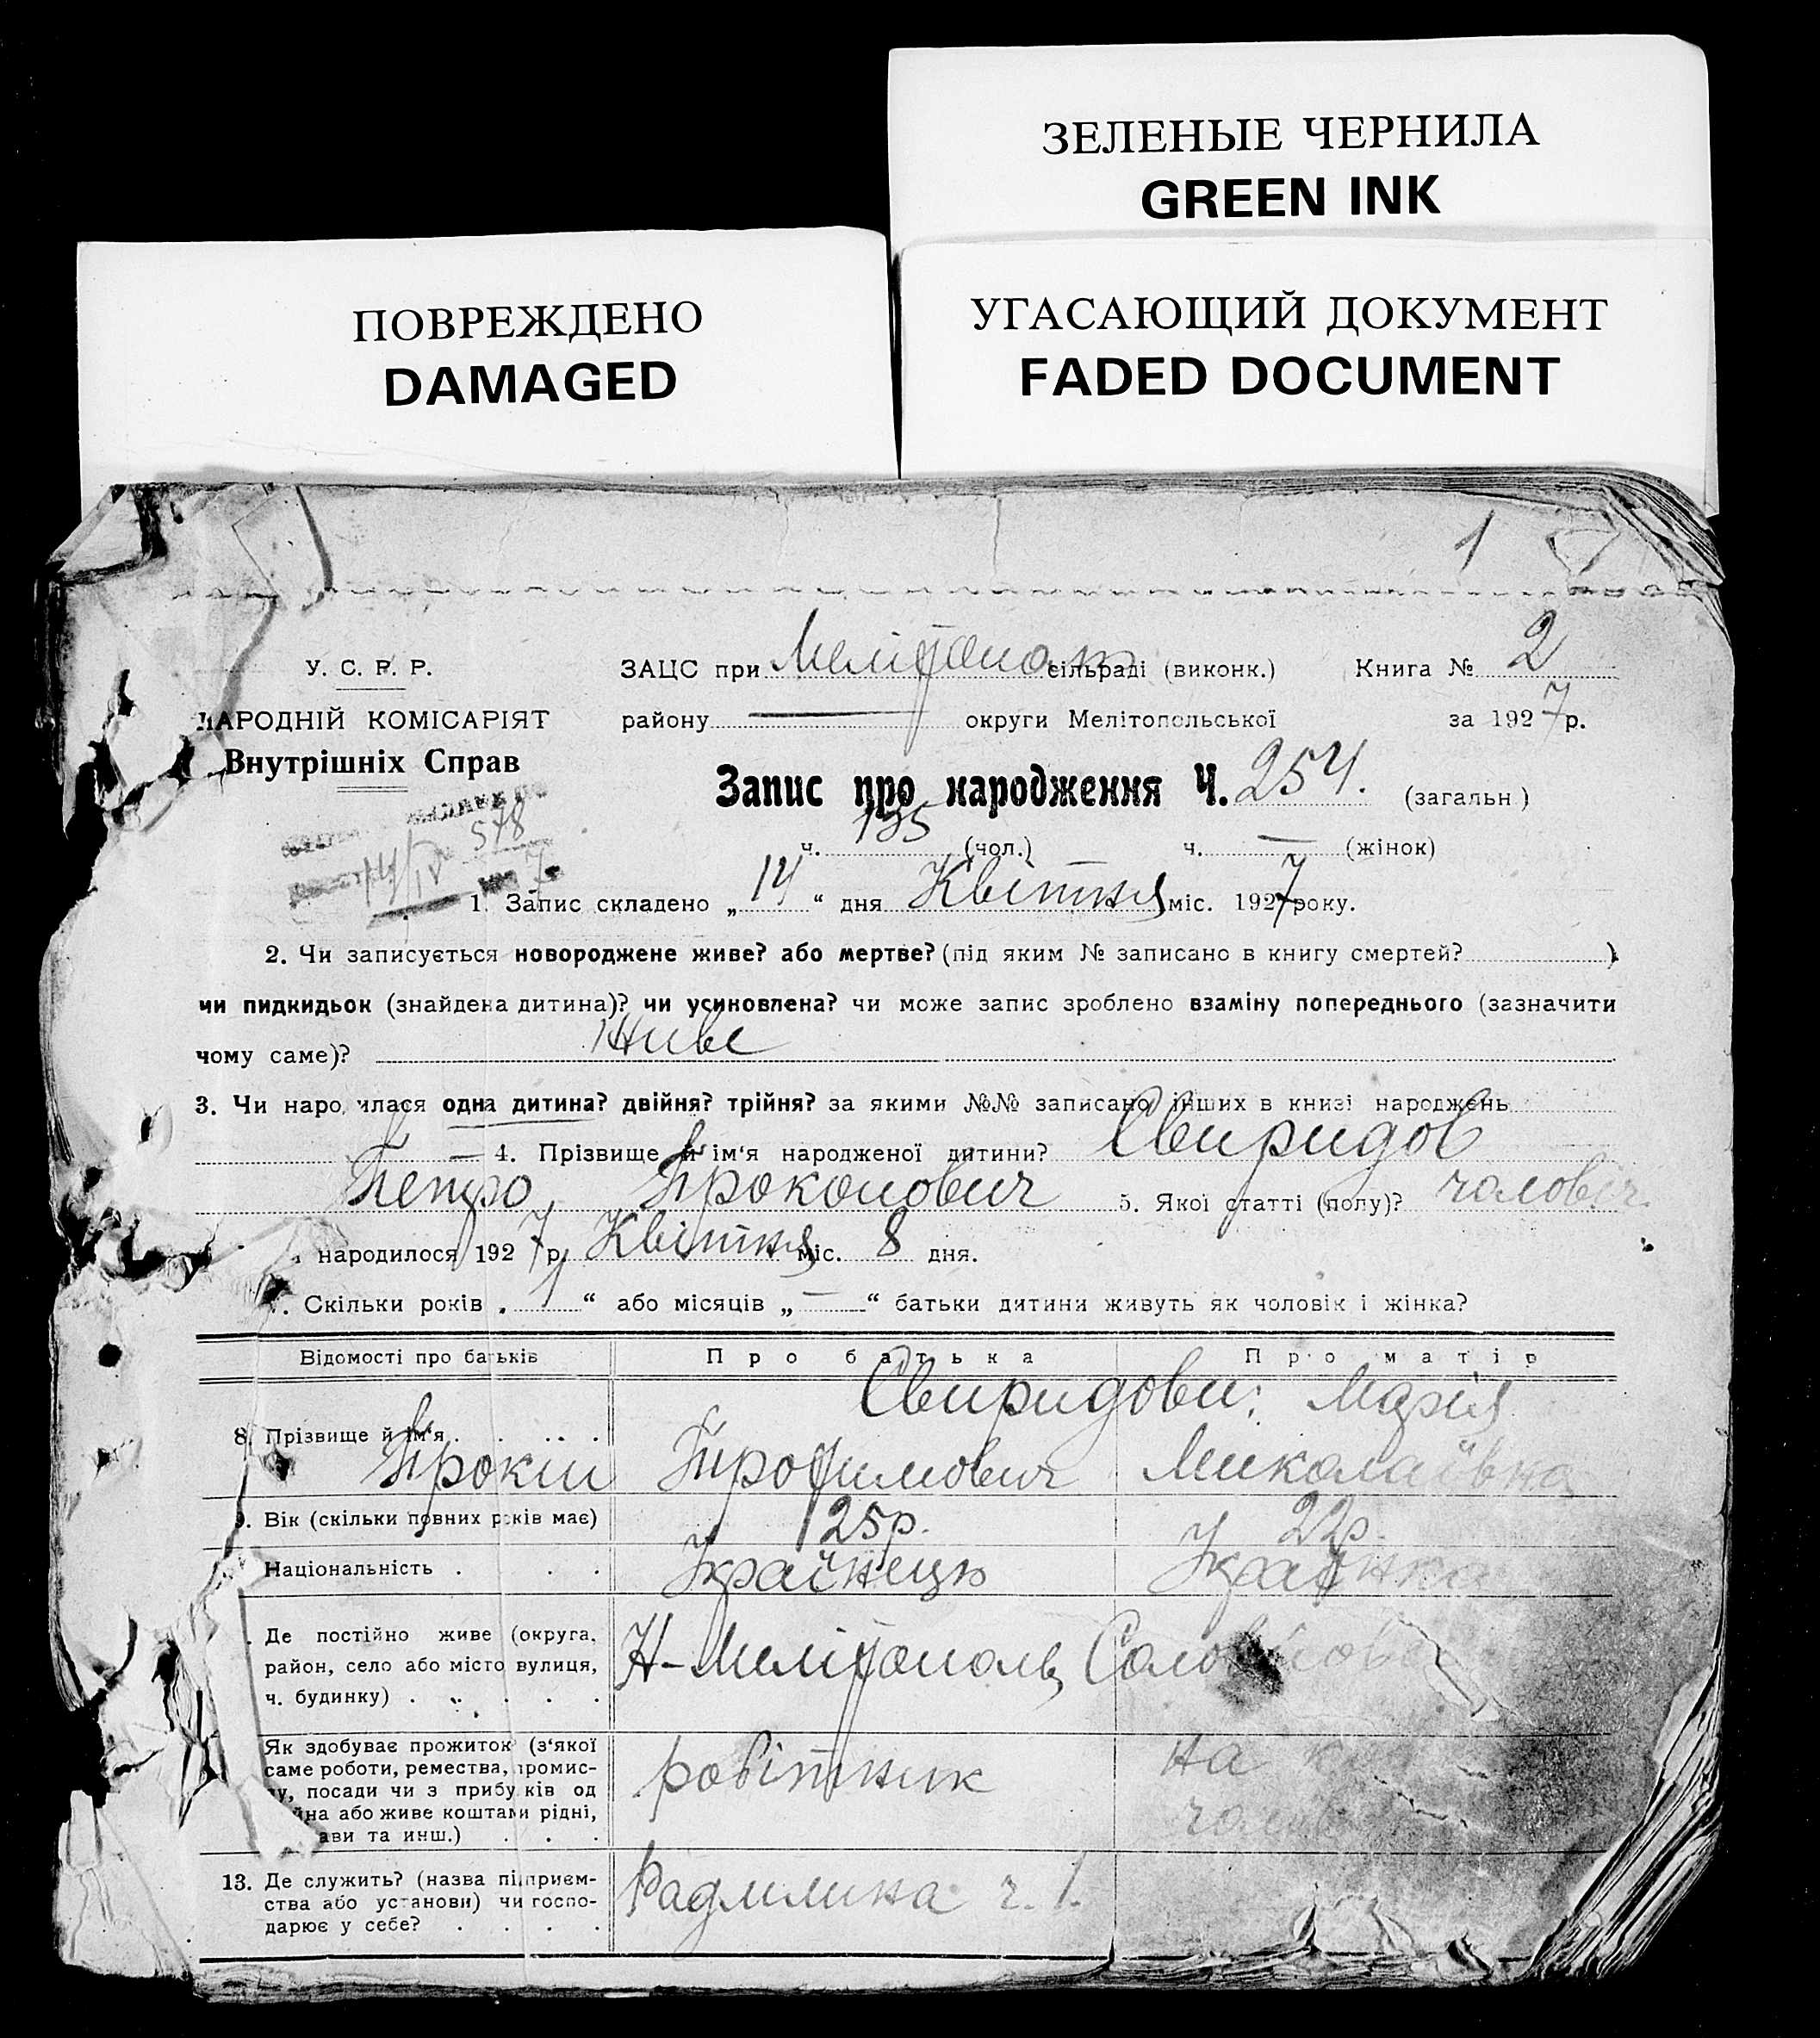 ЗЕЛЕНЫЕ ЧЕРНИЛА
GREEN INK
ПОВРЕЖДЕНО
DAMAGED
УГАСАЮЩИЙ ДОКУМЕНТ
FADED DOCUMENT
1
У. С. Р. Р.
ЗАЦС при сільраді (виконк.) Книга № 2
НАРОДНІЙ КОМІСАРІЯТ
району — округи Мелітопольської за 1927 р.
Внутрішніх Справ
Запис про народження Ч. 254. (загальн)
578
ч. 135 (чол.) ч. — (жінок)
1. Запис складено „14“ дня Квітня міс. 1927 року.
2. Чи записується новороджене живе? або мертве? (під яким № записано в книгу смертей? )
чи пидкидьок (знайдена дитина)? чи усиновлена? чи може запис зроблено взаміну попереднього (зазначити
чому саме)? Живе
3. Чи народилася одна дитина? двійня? трійня? за якими №№ записано інших в книзі народжень
— 4. Прізвище й ім'я народженої дитини? Свиридов
Петро Прокопович 5. Якої статті (полу)? чоловіч.
народилося 1927 р. Квітня міс. 8 дня.
Скільки років „1“ або місяців „—“ батьки дитини живуть як чоловік і жінка?
Відомості про батьків Про батька Про матір
Свиридови: Марія
8. Прізвище й ім'я
Прокіп Трофимович Миколаївна
Вік (скільки повних років має) 25р. 22р.
Національність Українець Українка
Де постійно живе (округа,
район, село або місто вулиця,
ч. будинку)
Н-Мелітополь
Як здобуває прожиток (з'якої
саме роботи, ремества, промис-
у, посади чи з прибутків од
йна або живе коштами рідні,
ави та инш.)
робітник
на
13. Де служить? (назва підприєм-
ства або установи) чи госпо-
дарює у себе?
ч. 1.